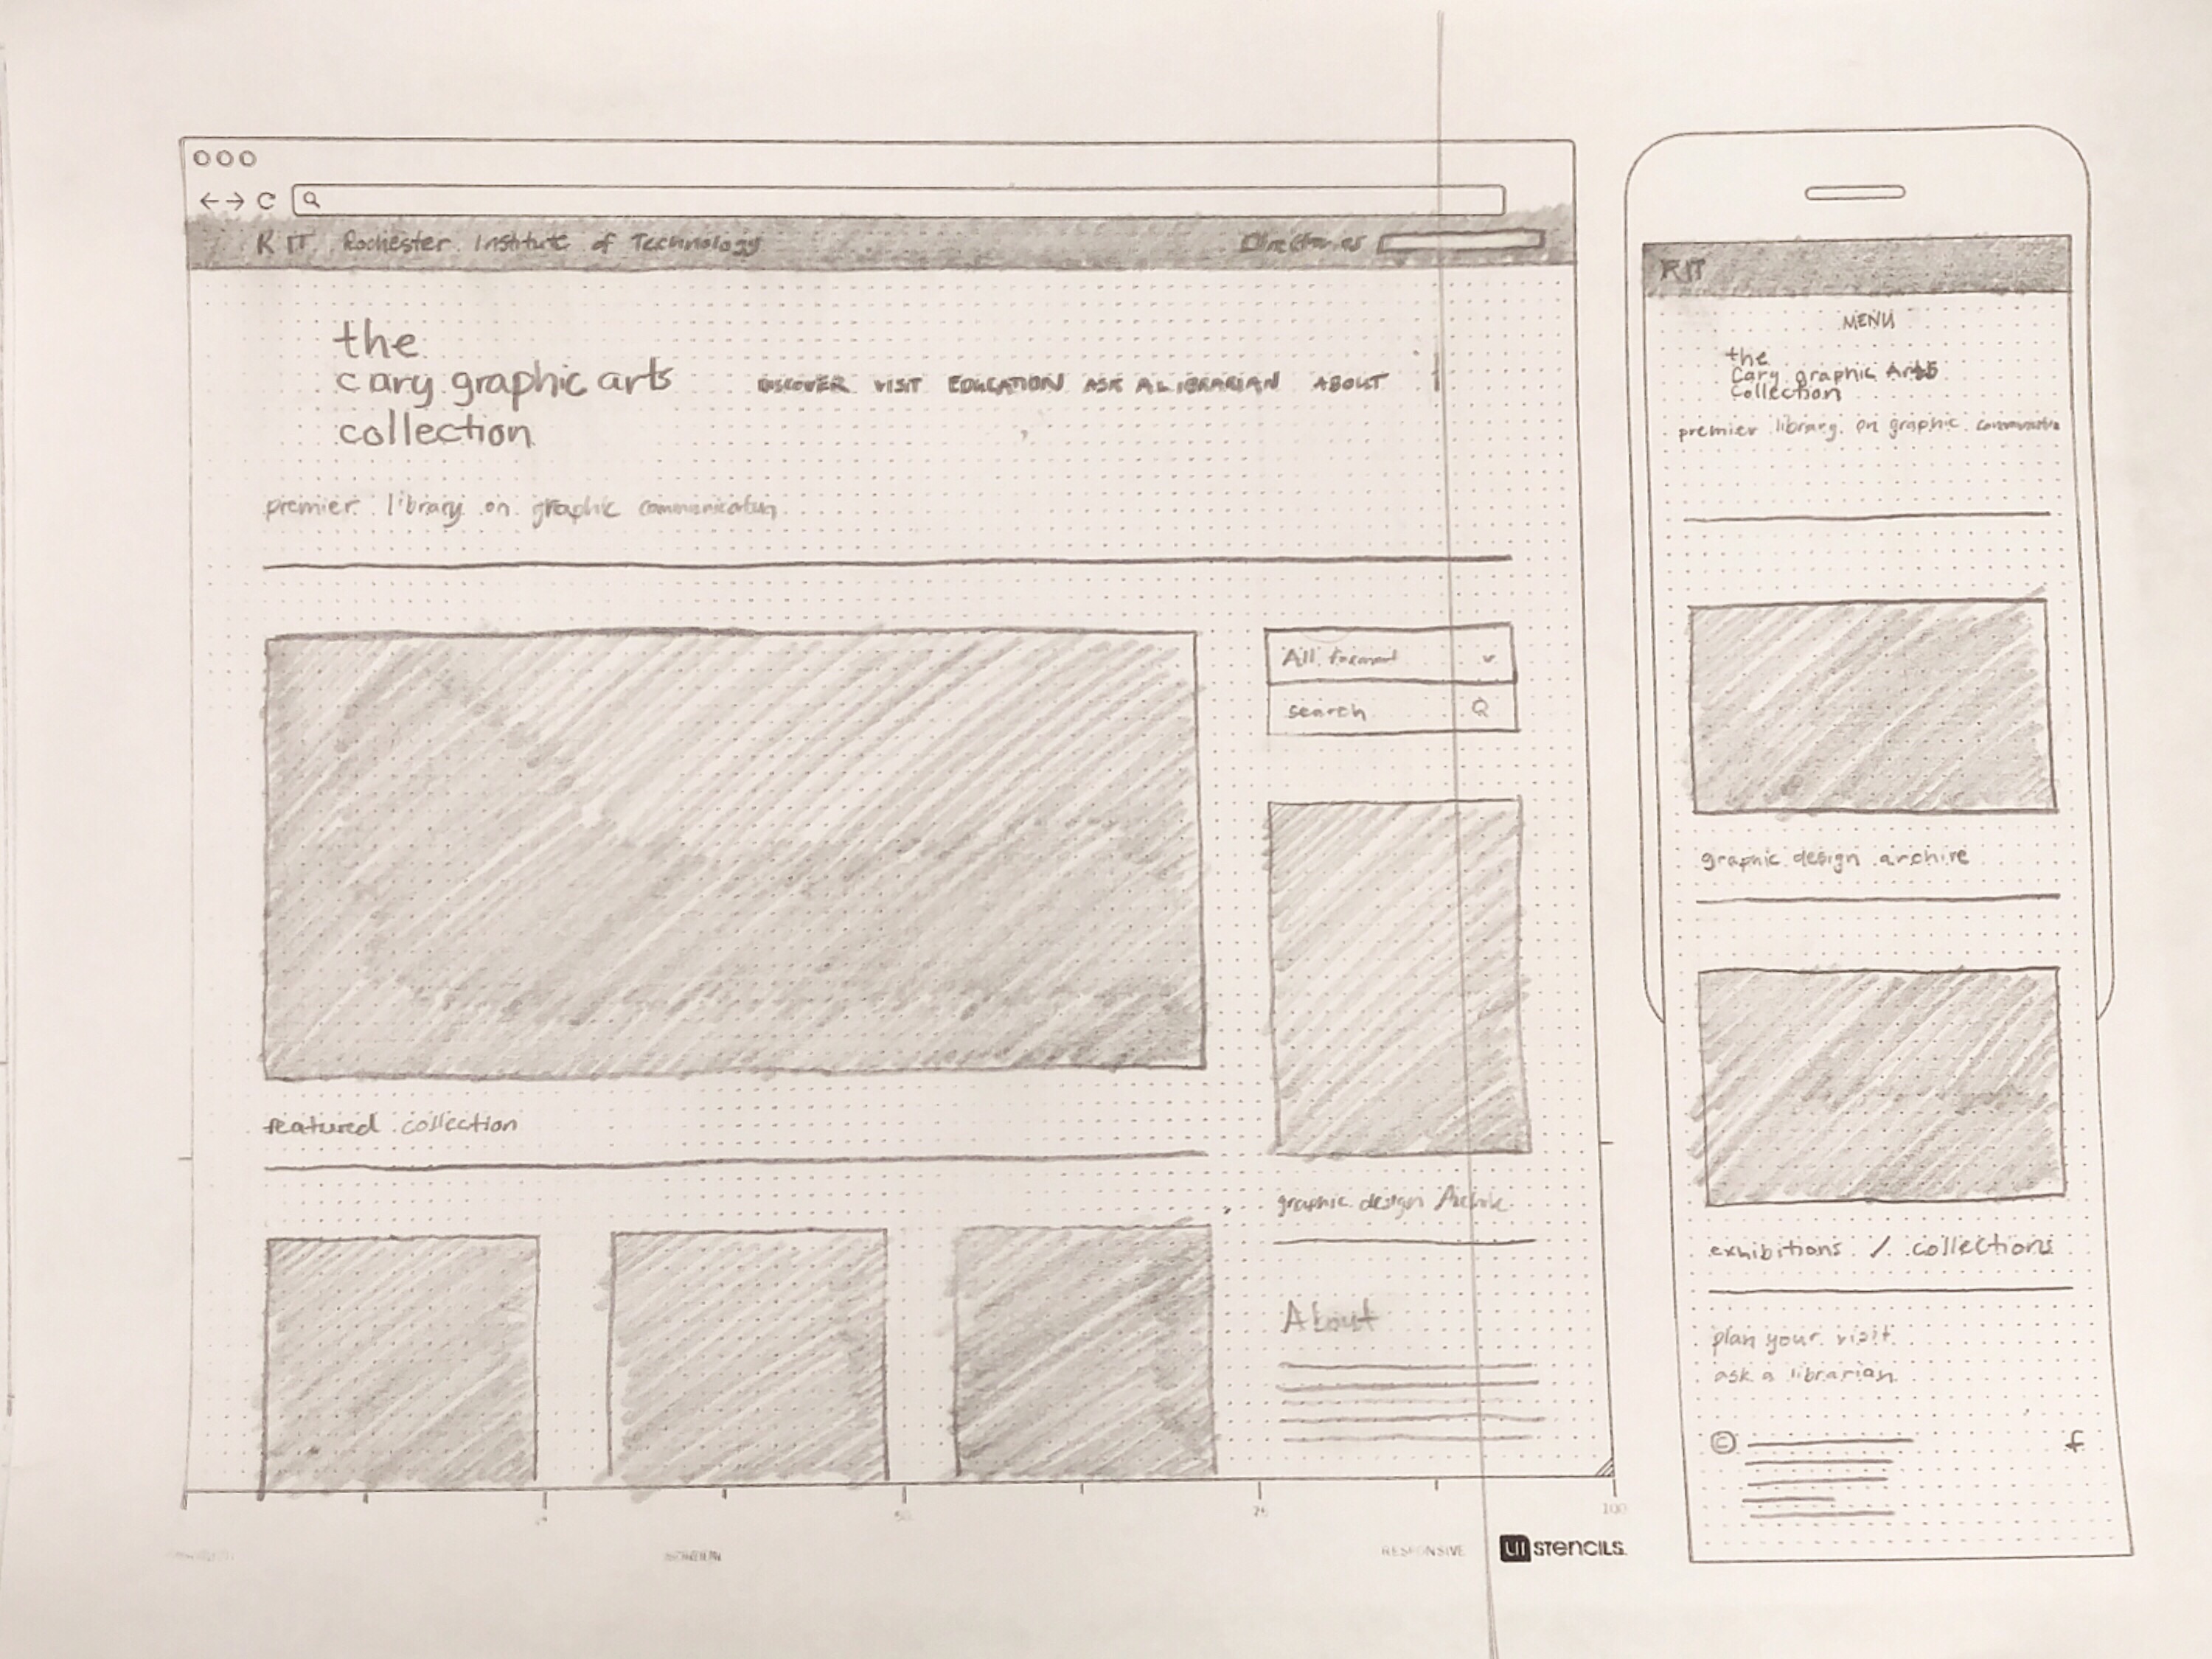 RIT Rochester Institute of Technology Directories
the
cary graphic arts
collection
DISCOVER VISIT EDUCATION ASK A LIBRARIAN ABOUT
premier library on graphic communication
All format
search
featured collection
graphic design Archive
About
25
50
75
100
RESPONSIVE
UI STENCILS
RIT
MENU
the
Cary graphic Arts
Collection
premier library on graphic communication
graphic design archive
exhibitions / collections
plan your visit
ask a librarian
©
f